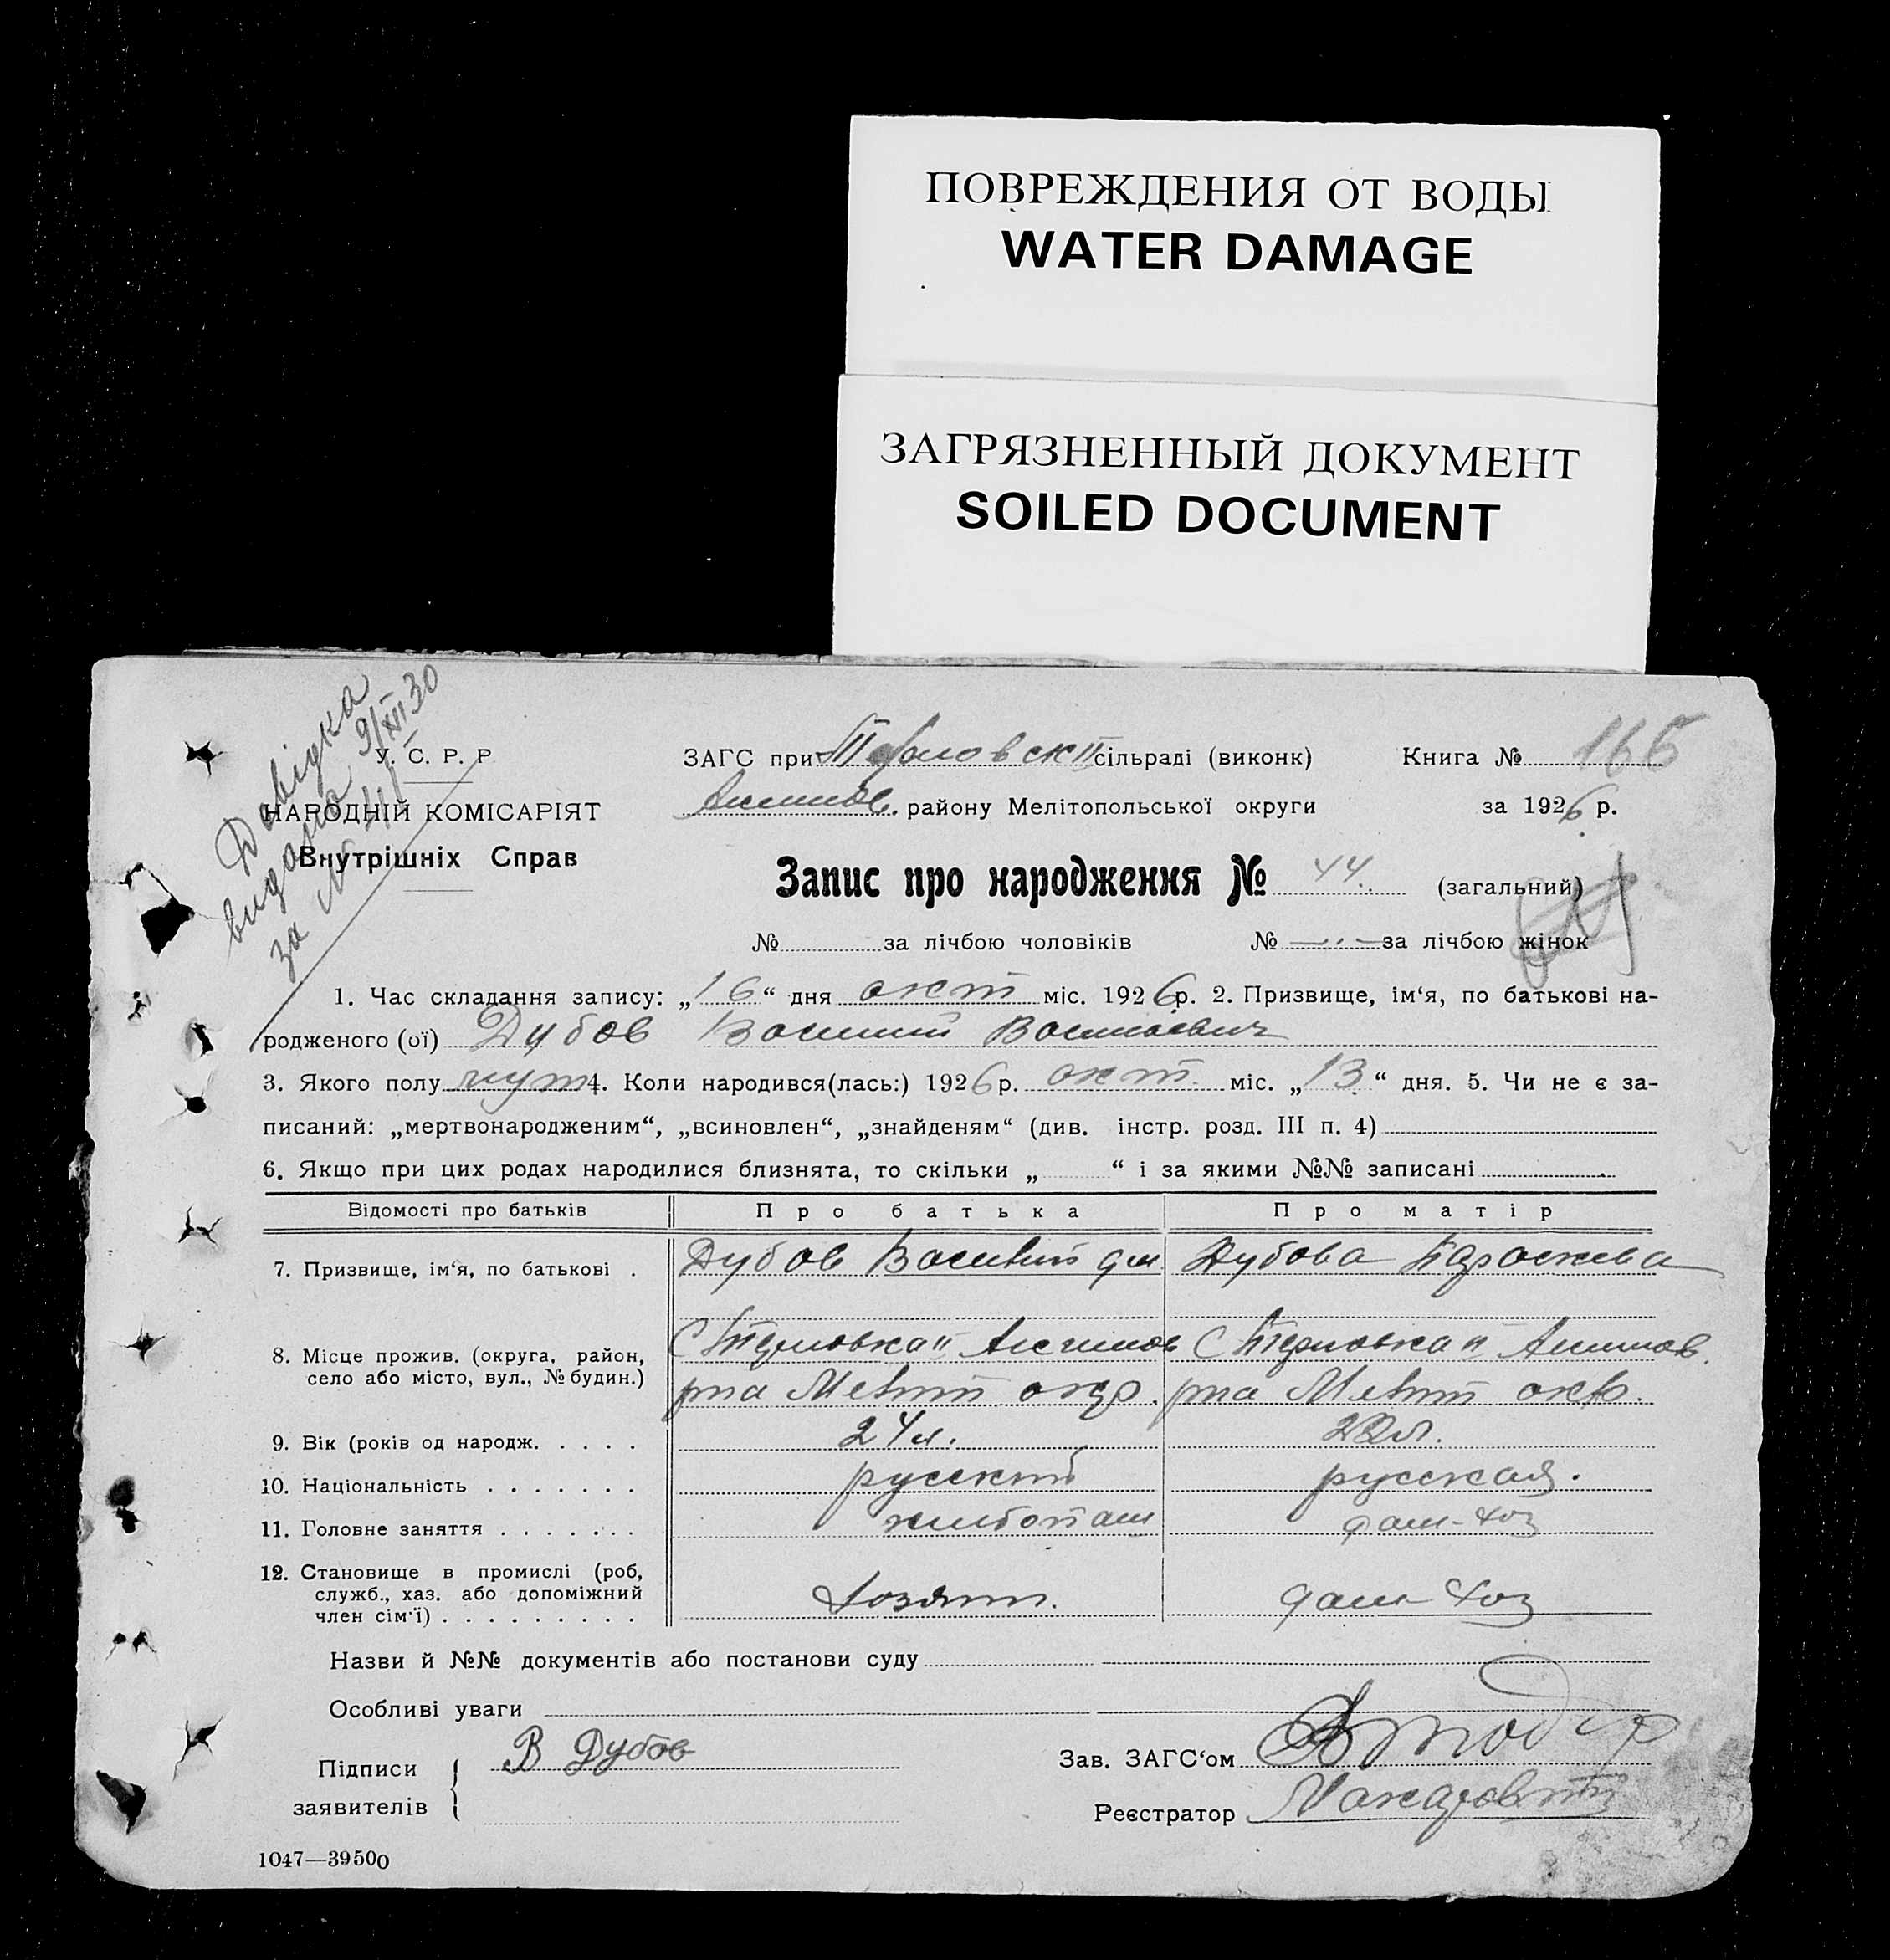 ПОВРЕЖДЕНИЯ ОТ ВОДЫ
WATER DAMAGE
ЗАГРЯЗНЕННЫЙ ДОКУМЕНТ
SOILED DOCUMENT
Довідка
видана 9/XII 30
за №
У. С. Р. Р
НАРОДНІЙ КОМІСАРІЯТ
Внутрішніх Справ
ЗАГС при сільраді (виконк) Книга № 166
Акимов. району Мелітопольської округи за 1926 р.
Запис про народження № 44 (загальний)
№ за лічбою чоловіків № за лічбою жінок
1. Час складання запису: „16“ дня окт міс. 1926 р. 2. Призвище, ім‘я, по батькові на-
родженого (ої) Дубов Василий Васильевич
3. Якого полу муж 4. Коли народився(лась:) 1926 р. окт. міс. „13“ дня. 5. Чи не є за-
писаний: „мертвонародженим“, „всиновлен“, „знайденям“ (див. інстр. розд. III п. 4)
6. Якщо при цих родах народилися близнята, то скільки „ “ і за якими №№ записані
Відомості про батьків Про батька Про матір
7. Призвище, ім‘я, по батькові . Дубов Василий Дубова Параскева
8. Місце прожив. (округа, район, село або місто, вул., № будин.) С Акимов С Акимов.
рна Мелит окр. рна Мелит окр.
9. Вік (років од народж. . . . . 24 л. 22 л.
10. Національність . . . . . . . русский русская.
11. Головне заняття . . . . . . . хлебопаш дом-хоз
12. Становище в промислі (роб,
служб., хаз. або допоміжний
член сім‘ї) . . . . . . . . . хозяин. дом-хоз
Назви й №№ документів або постанови суду
Особливі уваги
Підписи
заявителів
В Дубов
Зав. ЗАГС‘ом
Реєстратор
1047—39500